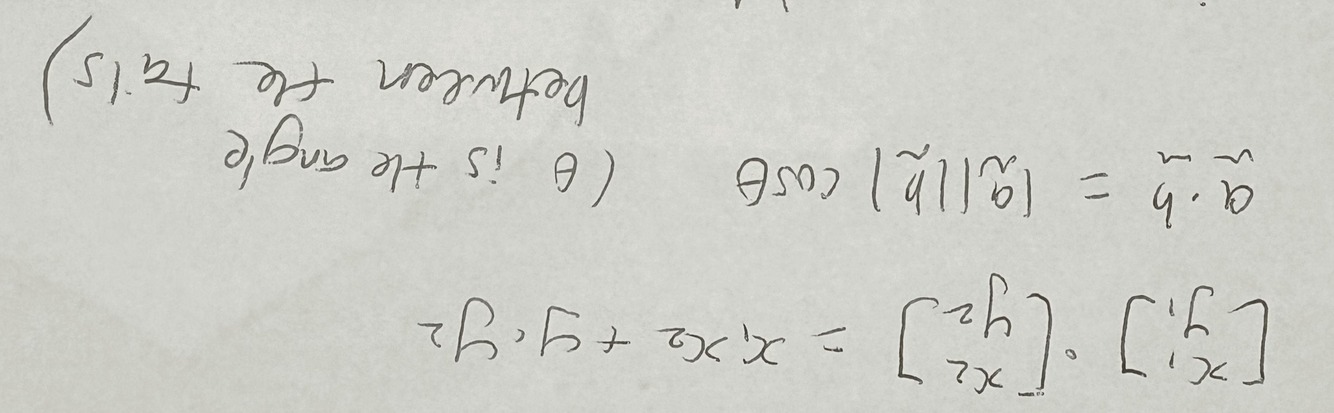 [x₁ y₁] · [x₂ y₂] = x₁x₂ + y₁y₂
a̰·b̰ = |a̰||b̰| cosθ (θ is the angle
between the tails)